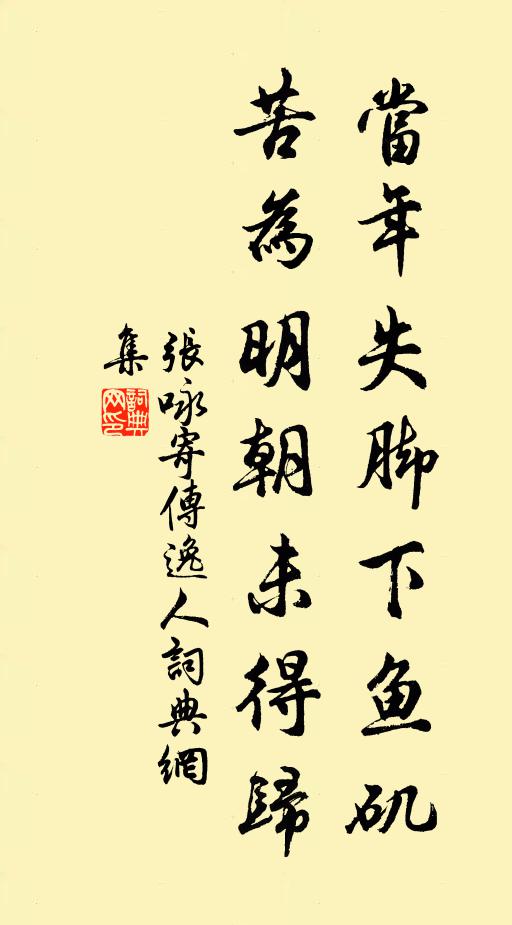 當年失脚下鱼矶
苦為明朝未得歸
張咏寄傅逸人詞典網
集
詞典
网印